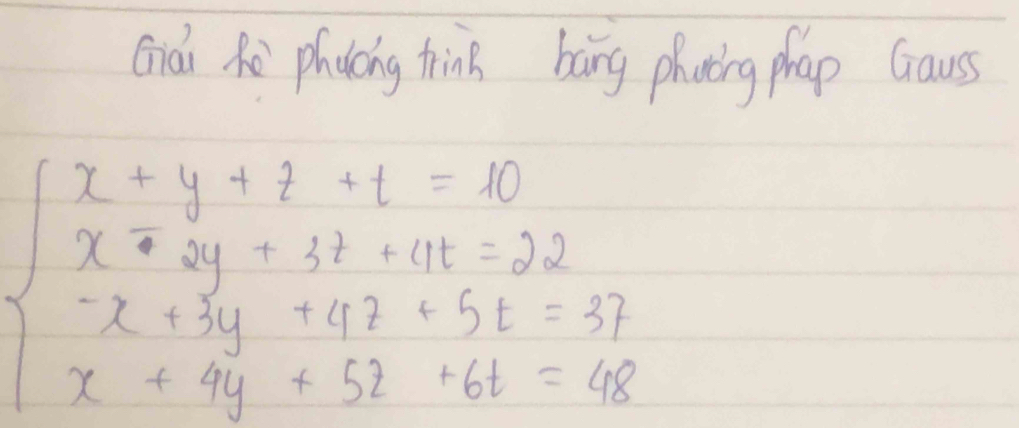 Giải hệ phương trình bằng phương pháp Gauss
x + y + z + t = 10
x - 2y + 3z + 4t = 22
-x + 3y + 4z + 5t = 37
x + 4y + 5z + 6t = 48